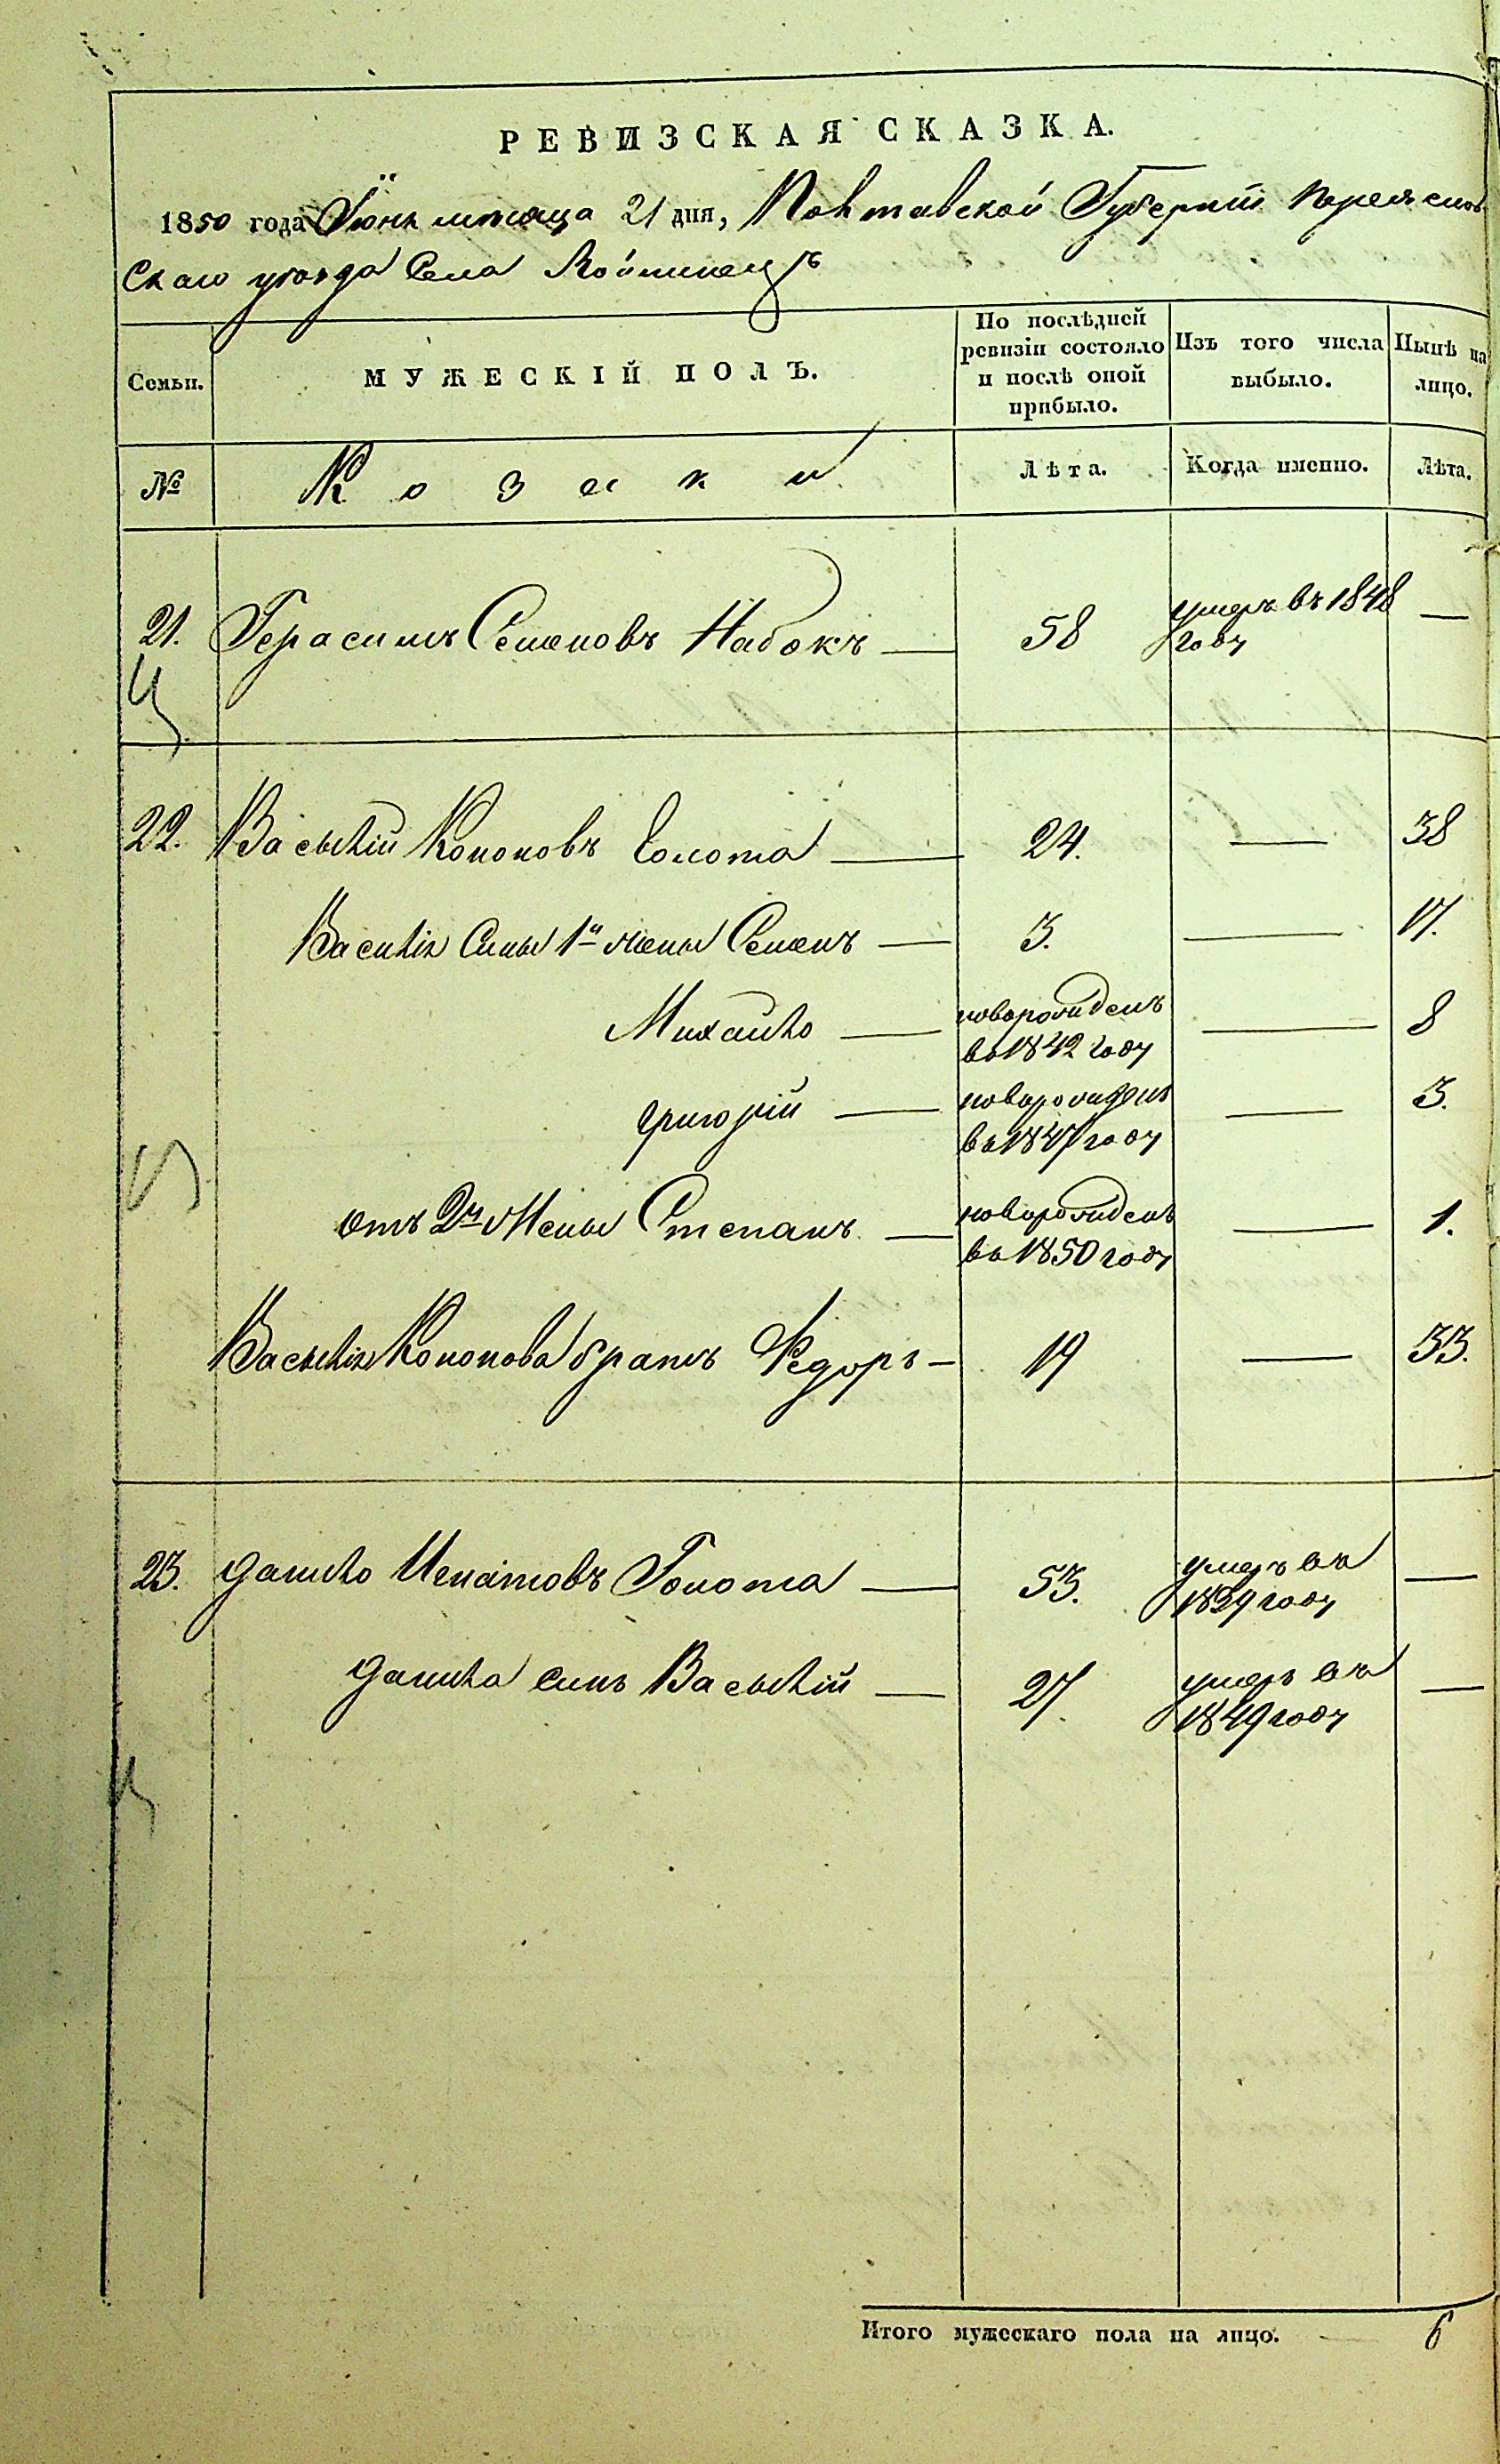 РЕВИЗСКАЯ СКАЗКА.
1850 года Іюнь мѣсяца 21 дня, Полтавской Губерніи Переяслов
Скаго уѣзда Села Войтовецъ
Семьи. МУЖЕСКІЙ ПОЛЪ. По послѣдней ревизіи состояло и послѣ оной прибыло. Изъ того числа выбыло. Нынѣ на лицо.
№ Козаки Лѣта. Когда именно. Лѣта.
21. Герасимъ Семеновъ Набокъ — 58 умеръ въ 1848 году —
22. Васылій Кононовъ Голота — 24. — 38
Василія Сыны 1й жены Семенъ — 3. — 17.
Михайло — новорожденъ въ 1842 году — 8
Григорій — новорожденъ въ 1847 году — 3.
отъ 2й Жены Степанъ — новорожденъ въ 1850 году — 1.
Васылія Кононова братъ Федоръ — 19 — 33.
23. Данило Игнатовъ Голота — 53. умеръ въ 1839 году —
Данила сынъ Васылій — 27. умеръ въ 1849 году —
Итого мужескаго пола на лицо. — 6